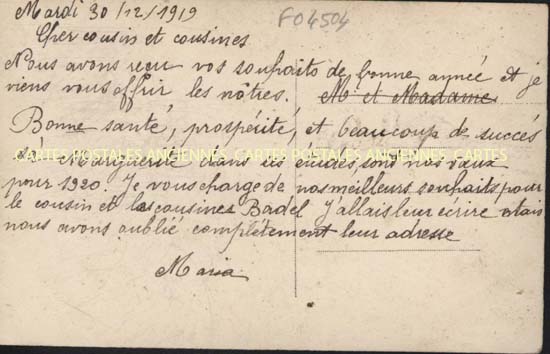 Mardi 30/12/1919
F04504
Cher cousin et cousines
Nous avons reçu vos souhaits de bonne année et je
viens vous offrir les nôtres. Mr et Madame
Bonne santé, prospérité, et beaucoup de succès
CARTES POSTALES ANCIENNES CARTES POSTALES ANCIENNES CARTES
Marguerite dans ses études sont nos vœux
pour 1920. Je vous charge de nos meilleurs souhaits pour
le cousin et les cousines Badel J'allais leur écrire mais
nous avons oublié complètement leur adresse
Maria